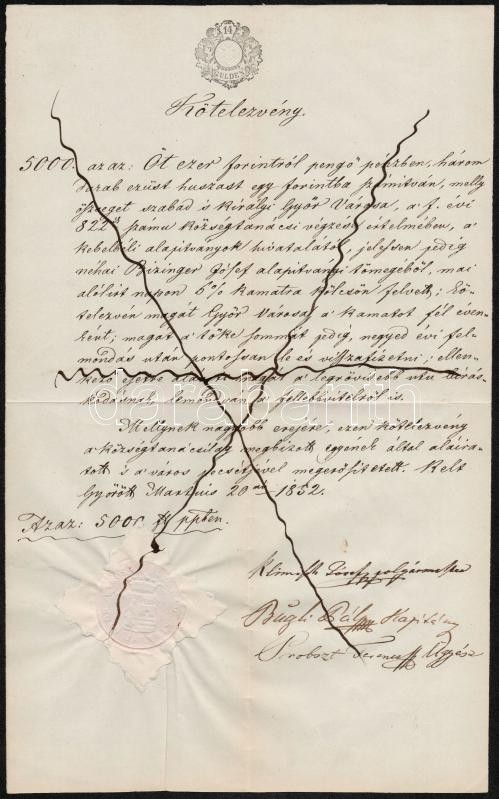 14
GULDEN
Kötelezvény.
5000. azaz: Öt ezer forintról pengő pénzben, három
darab ezüst huszast egy forintba számitván, melly
öszveget szabad is királyi Győr Városa, a f. évi
822 számu községtanácsi végzés értelmében, a
kebelbeli alapitványok hivatalától, jelesen pedig
néhai Bizinger Jósef alapitványi tömegéből, mai
alólirt napon 6% kamatra kölcsön felvett; kö-
telezvén magát Győr Városa, a kamatot fél éven-
ként, magát a tőke sommát pedig, negyed évi fel-
mondás után pontossan le és visszafizetni; ellen-
kező esetre magát a legrövisebb utu birás-
kodásnak, lemondván is.
Mellynek nagyobb erejére, ezen kötelezvény
a községtanácsilag megbizott egyének által aláira-
tott és a város pecsétjével megerősittetett. Kelt
Győrött Martzius 20án 1852.
Azaz: 5000 ppben.
darabanth
polgármester
Pál Kapitány
Ferencz Ügyész